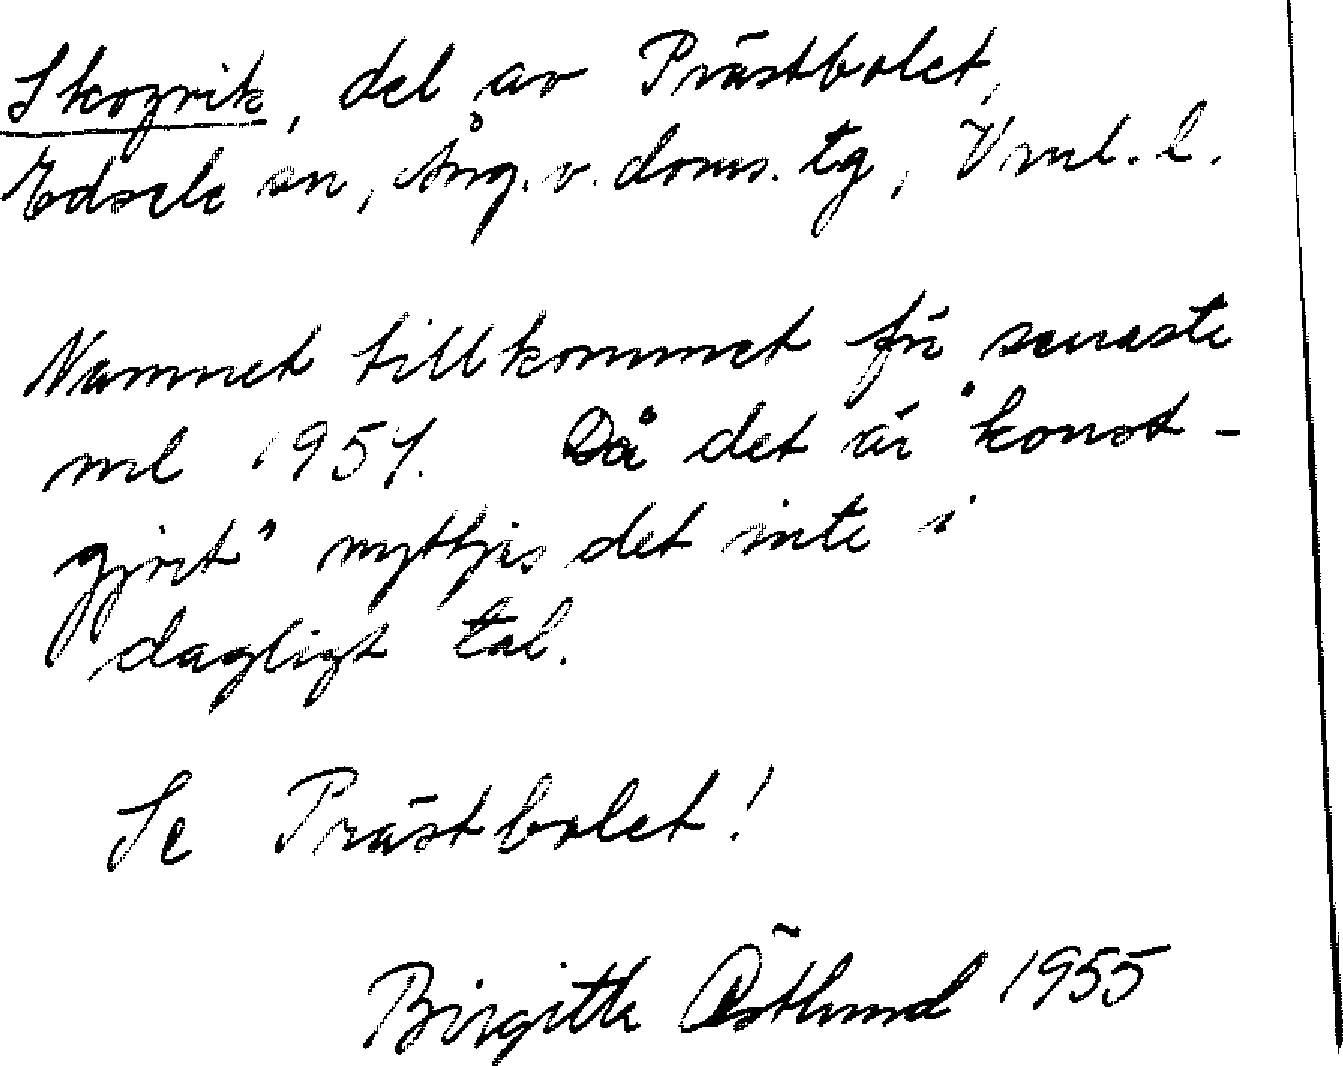 Skogvik, del av Prästbolet,
Edsele sn, Ång. v. doms. tg, Vnrl. l.
Namnet tillkommet för senaste
ml 1954. Då det är "konst-
gjort" nyttjas det inte i
dagligt tal.
Se Prästbolet!
Birgitta Östlund 1955